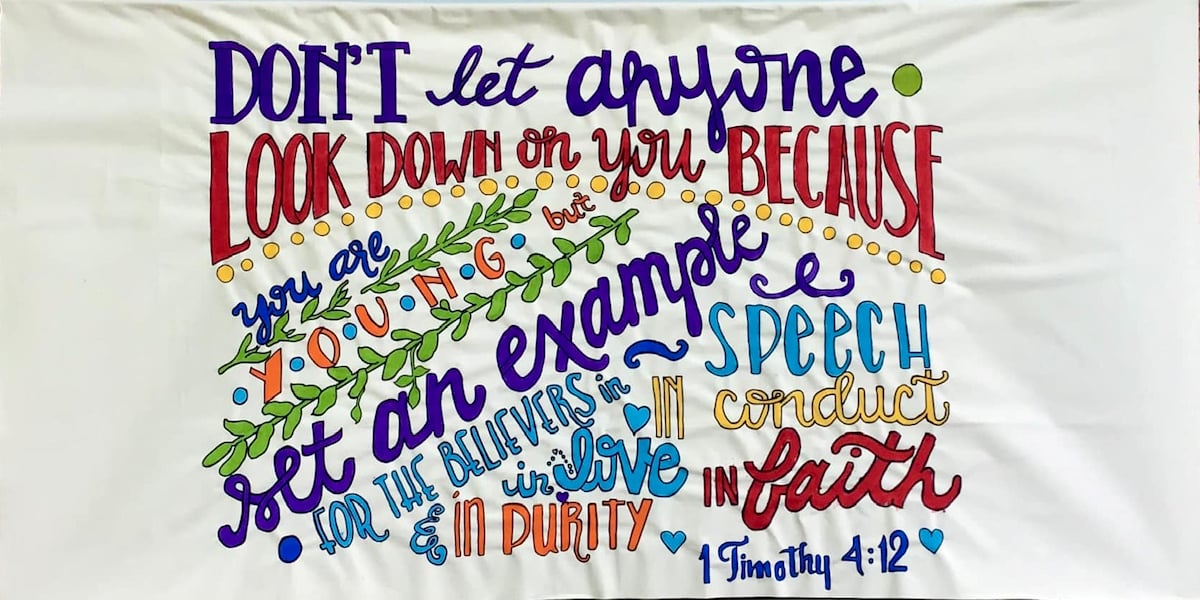 DON'T let anyone
LOOK DOWN on you BECAUSE
you are
Y.O.U.N.G. but
set an example
FOR THE BELIEVERS in
SPEECH
IN conduct
in love
IN faith
& in PURITY
1 Timothy 4:12